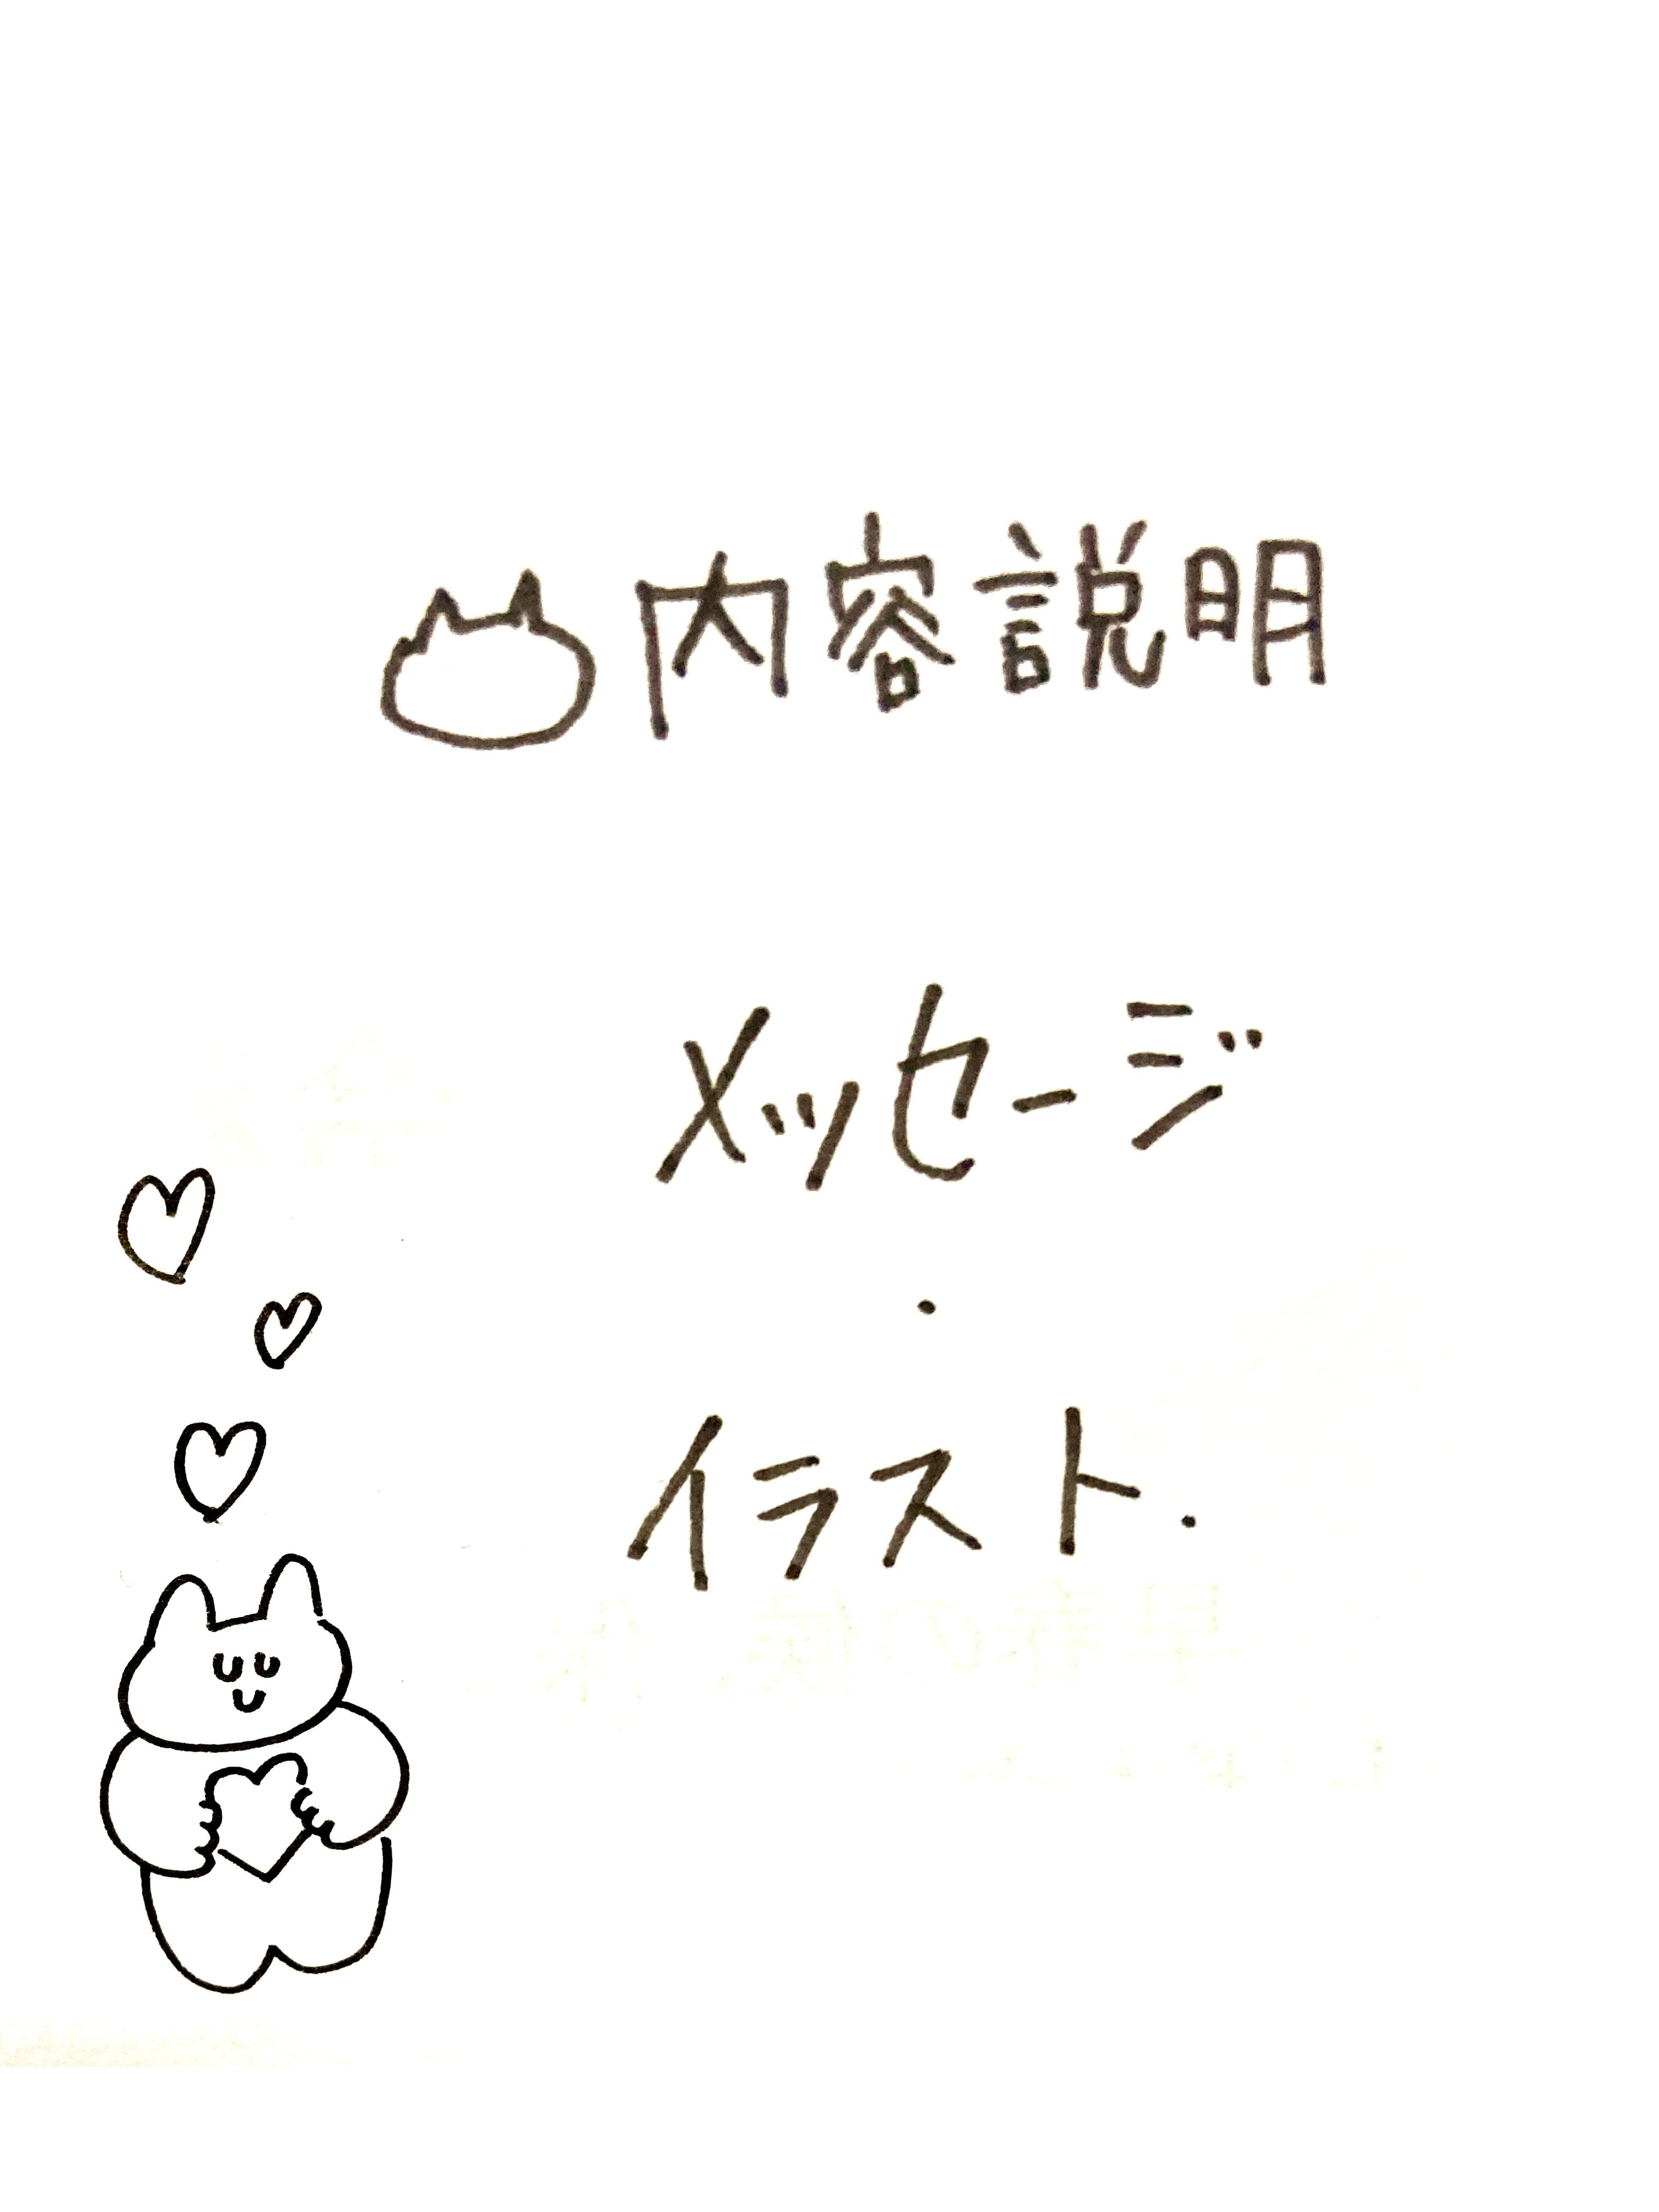 内容説明
メッセージ
・
イラスト.